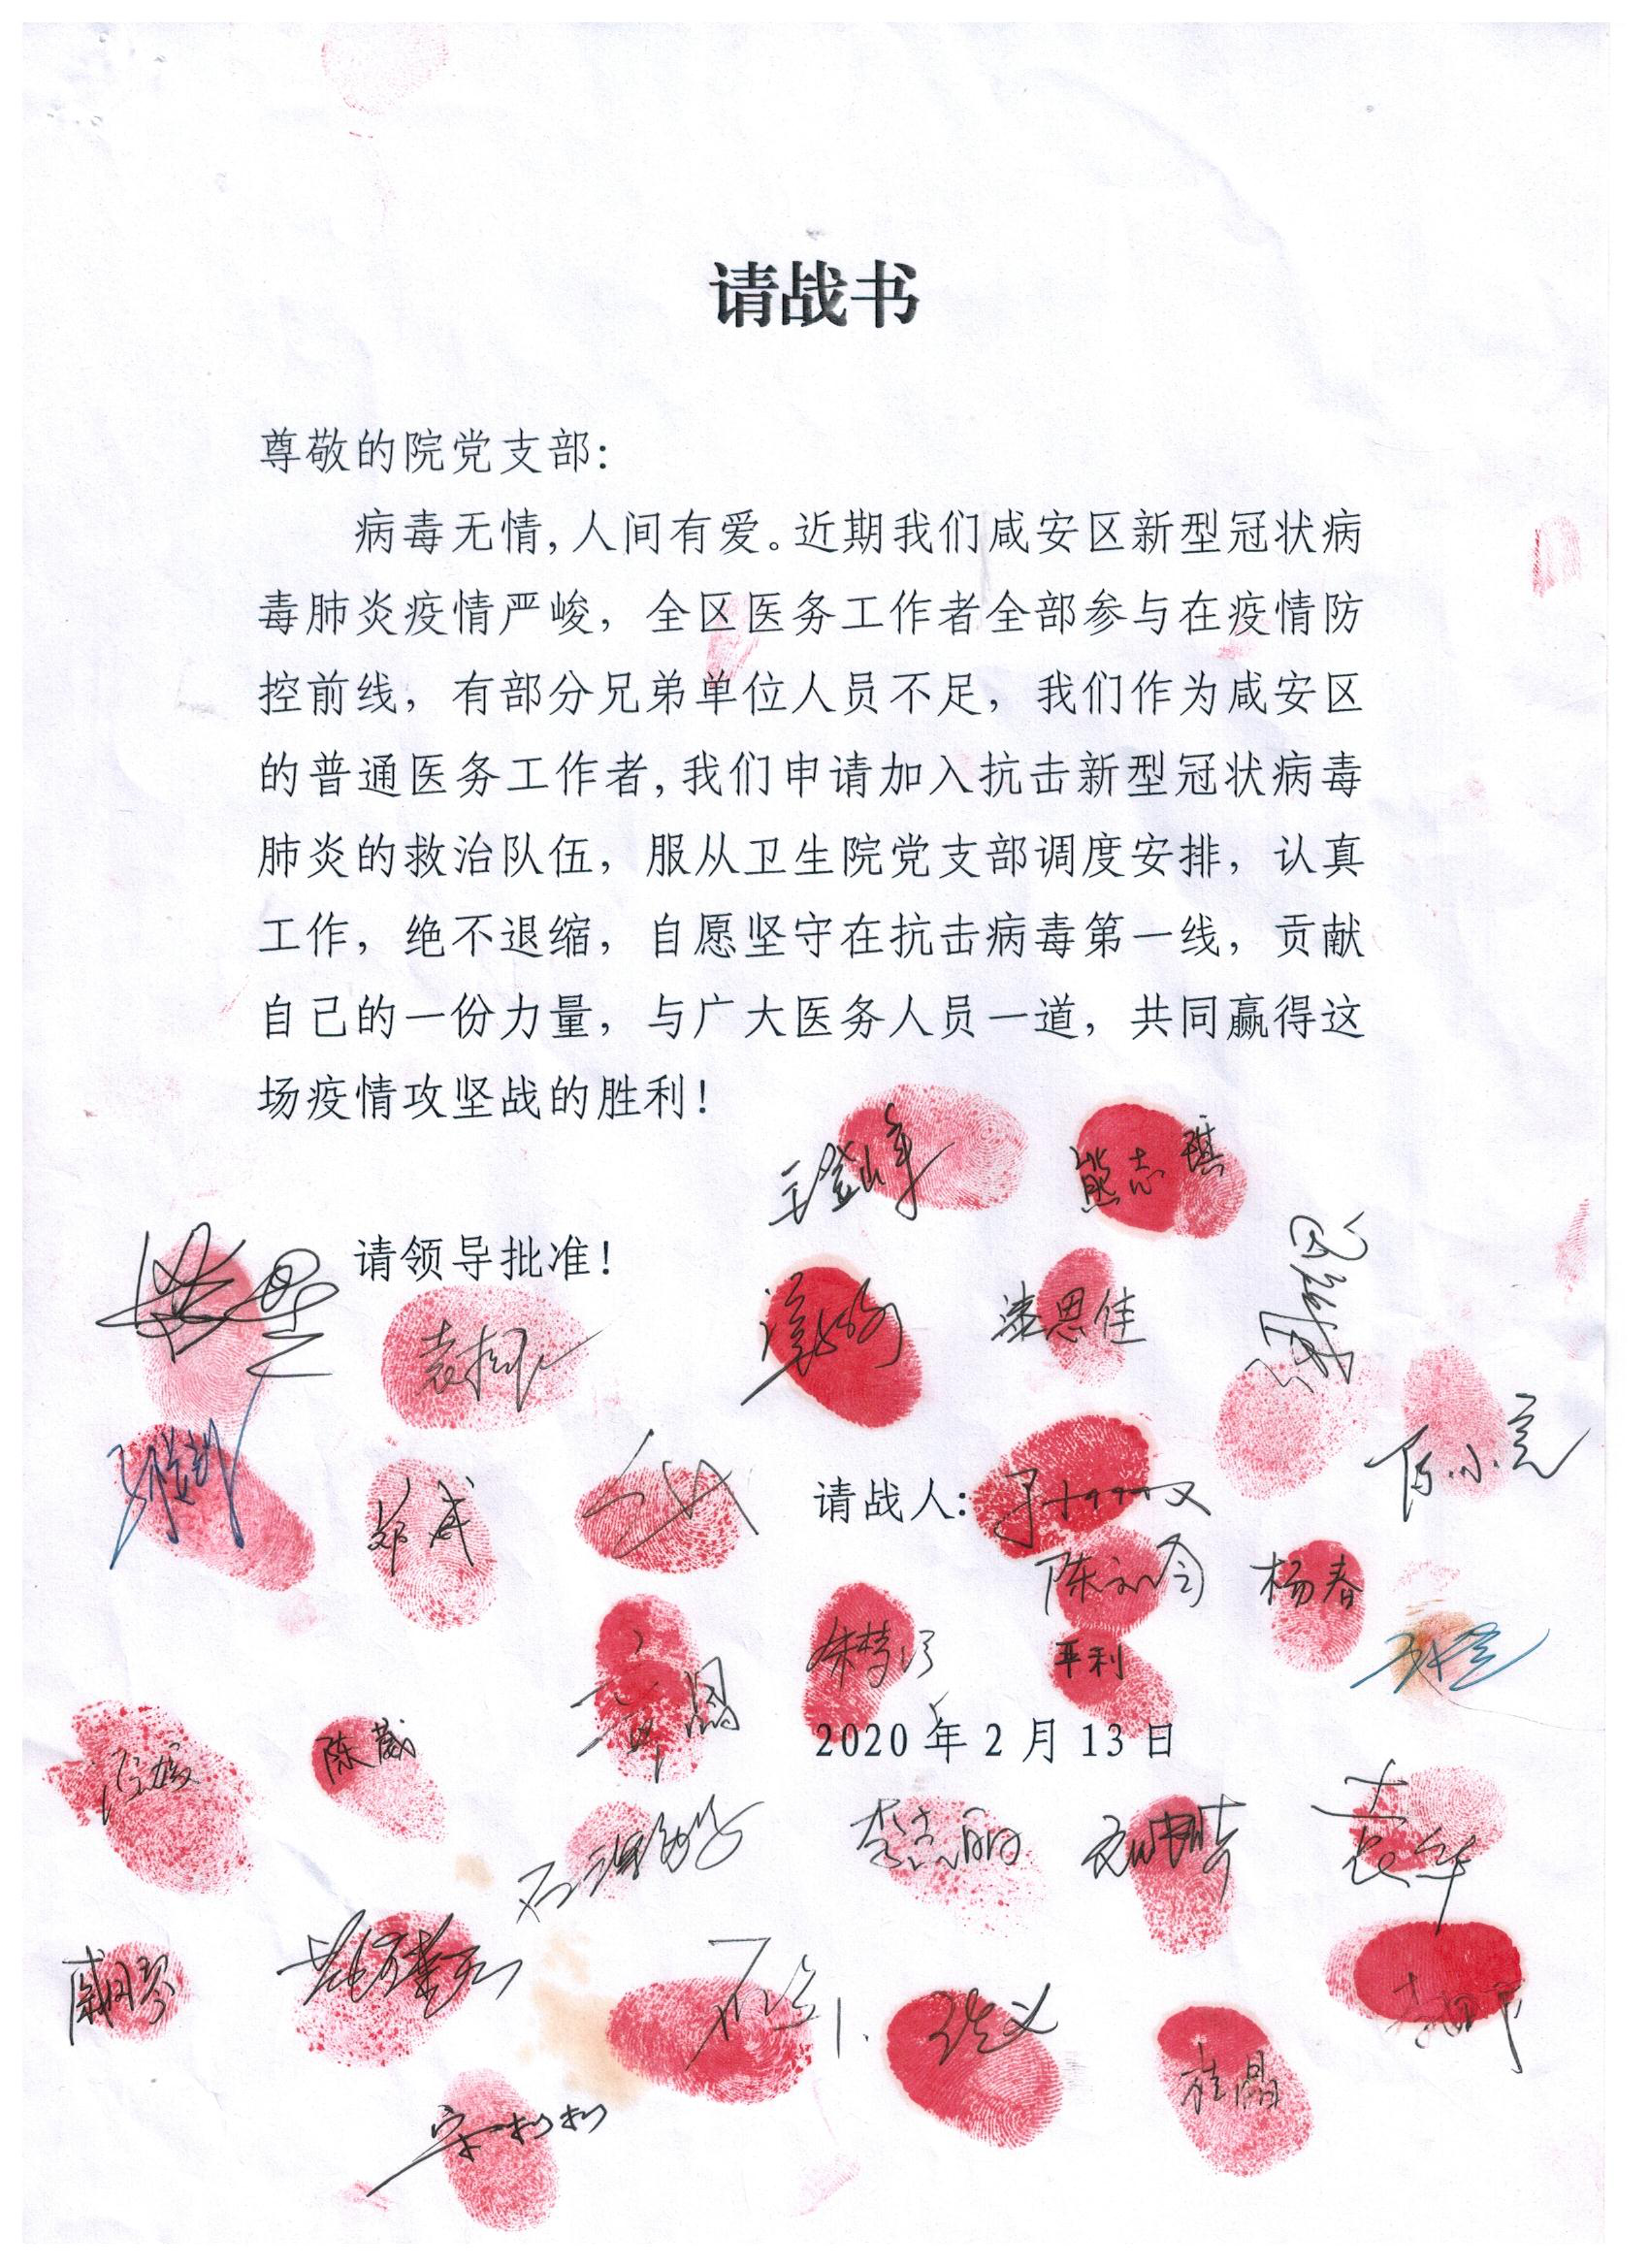 请战书
尊敬的院党支部：
病毒无情，人间有爱。近期我们咸安区新型冠状病
毒肺炎疫情严峻，全区医务工作者全部参与在疫情防
控前线，有部分兄弟单位人员不足，我们作为咸安区
的普通医务工作者，我们申请加入抗击新型冠状病毒
肺炎的救治队伍，服从卫生院党支部调度安排，认真
工作，绝不退缩，自愿坚守在抗击病毒第一线，贡献
自己的一份力量，与广大医务人员一道，共同赢得这
场疫情攻坚战的胜利！
王登峰
熊志琪
请领导批准！
漆思佳
陈小亮
郑威
请战人：
杨春
2020年2月13日
陈葳
李志丽
袁华
戚月琴
张义
桂晶
宋利利